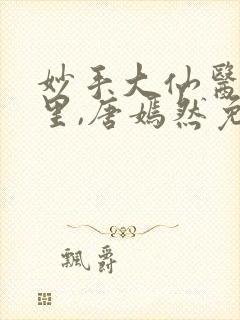 妙手大仙醫
里,唐嫣然免
飄爵